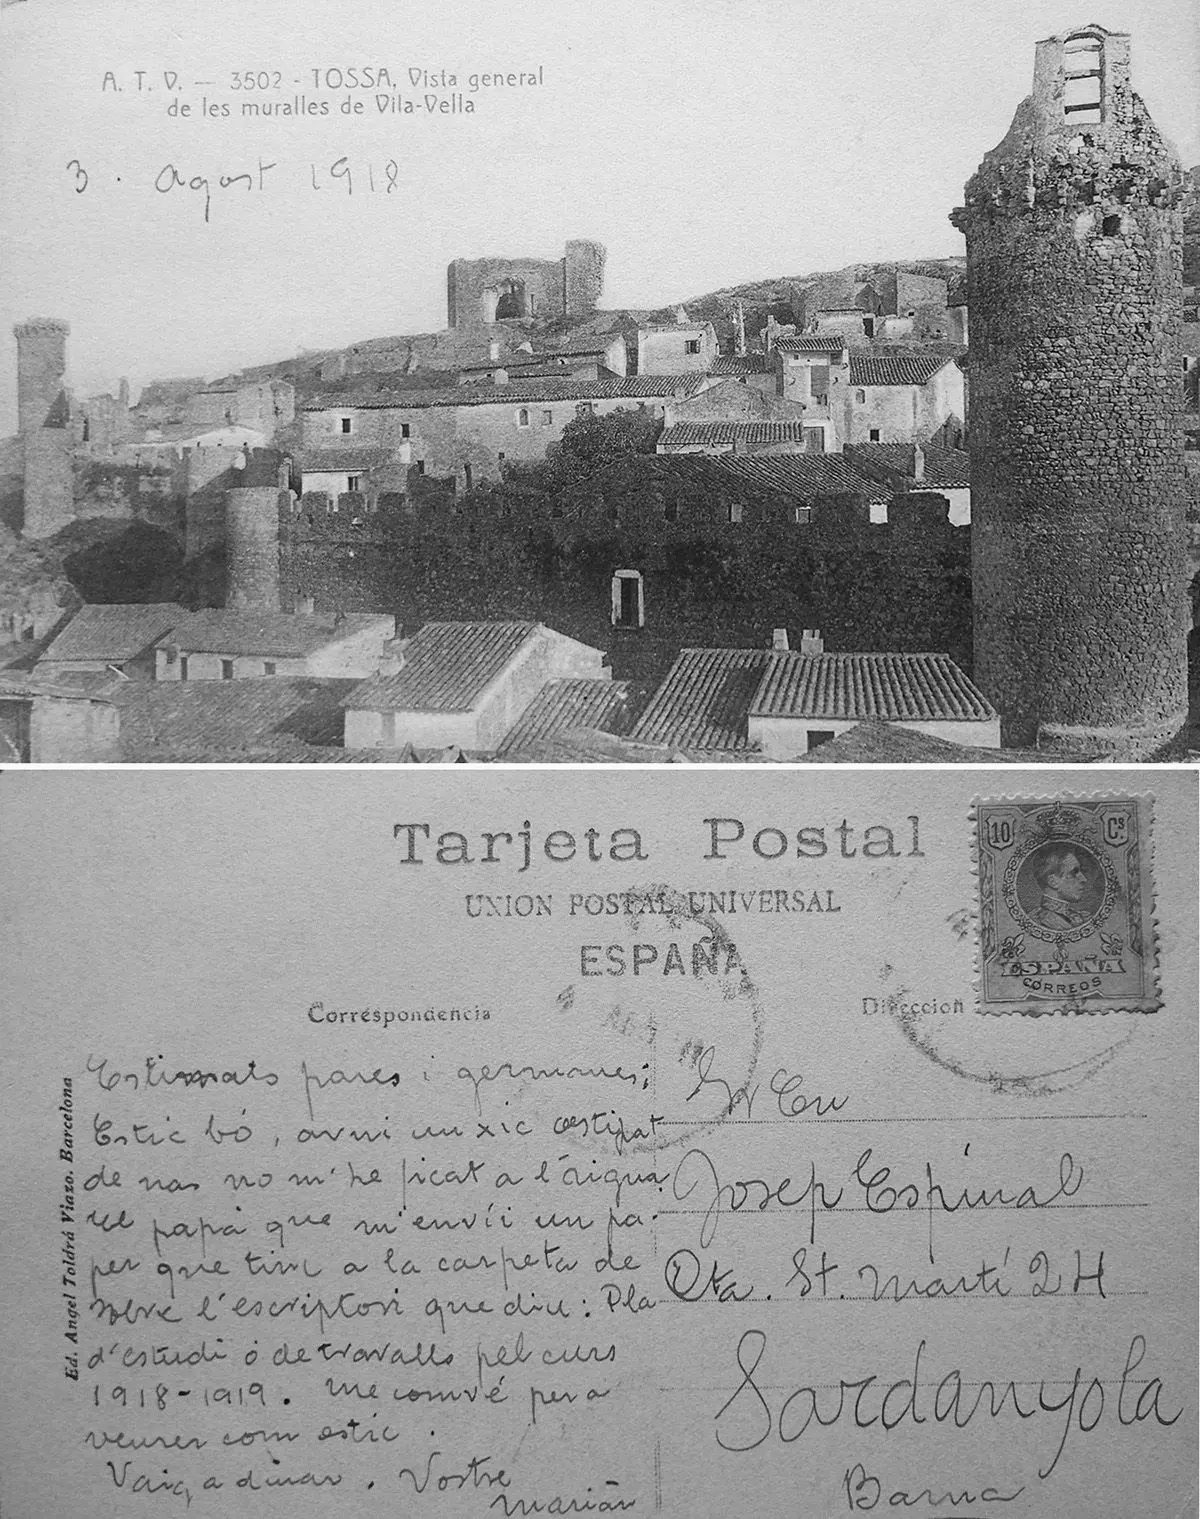 A. T. V. — 3502 - TOSSA, Vista general
de les muralles de Vila-Vella
3. agost 1918
Tarjeta Postal
UNION POSTAL UNIVERSAL
ESPAÑA
10 Cs
ESPAÑA
CORREOS
Correspondencia
Direccion
Ed. Angel Toldrá Viazo. Barcelona
Estimats pares i germanes;
Estic bó, avui un xic costipat
de nas no m'he ficat a l'áigua.
El papá que m'envíi un pa-
per que tinc a la carpeta de
sobre l'escriptori que diu: Pla
d'estudi ó de travalls pel curs
1918-1919. Me convé per a
veurer com estic.
Vaig a dinar. Vostre
Marián
Josep Espinal
Cta. St. Martí 24
Sardanyola
Barna